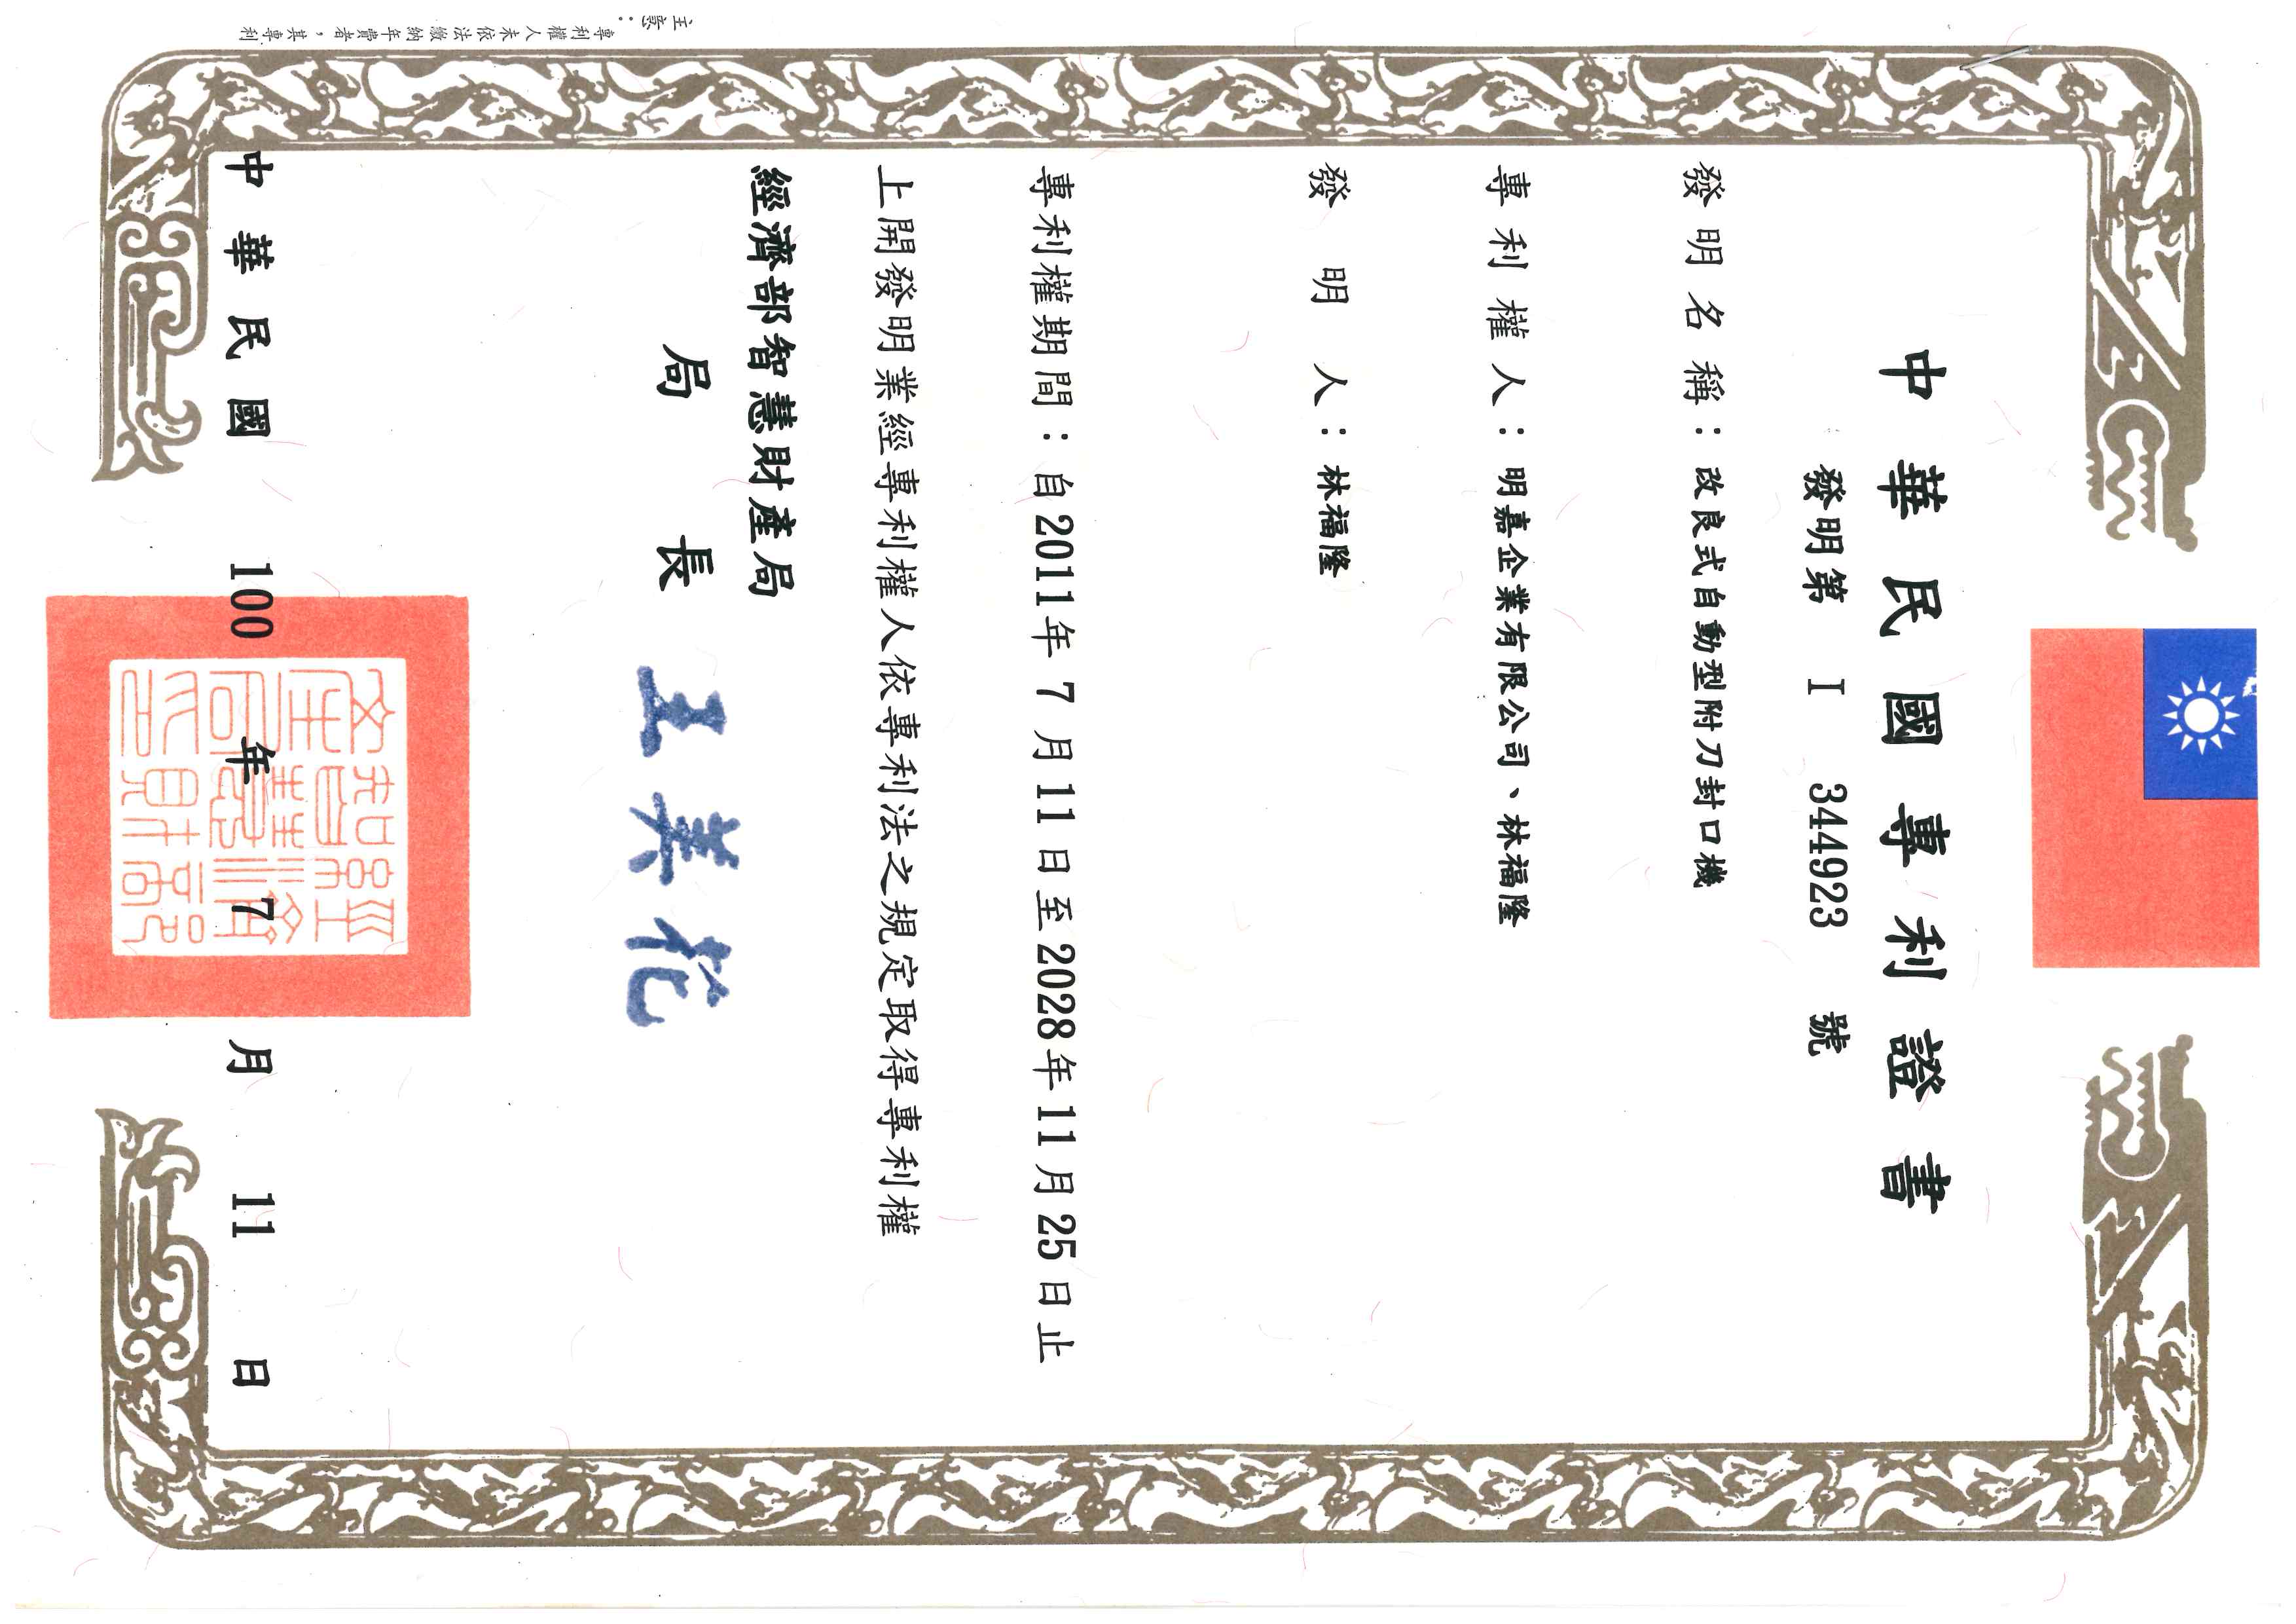 中華民國專利證書
發明第 I 344923 號
發明名稱：改良式自動型附刀封口機
專利權人：明嘉企業有限公司、林福隆
發明人：林福隆
專利權期間：自2011年7月11日至2028年11月25日止
上開發明業經專利權人依專利法之規定取得專利權
經濟部智慧財產局
局長 王美花
中華民國 100 年 7 月 11 日
注意：
專利權人未依法繳納年費者，其專利